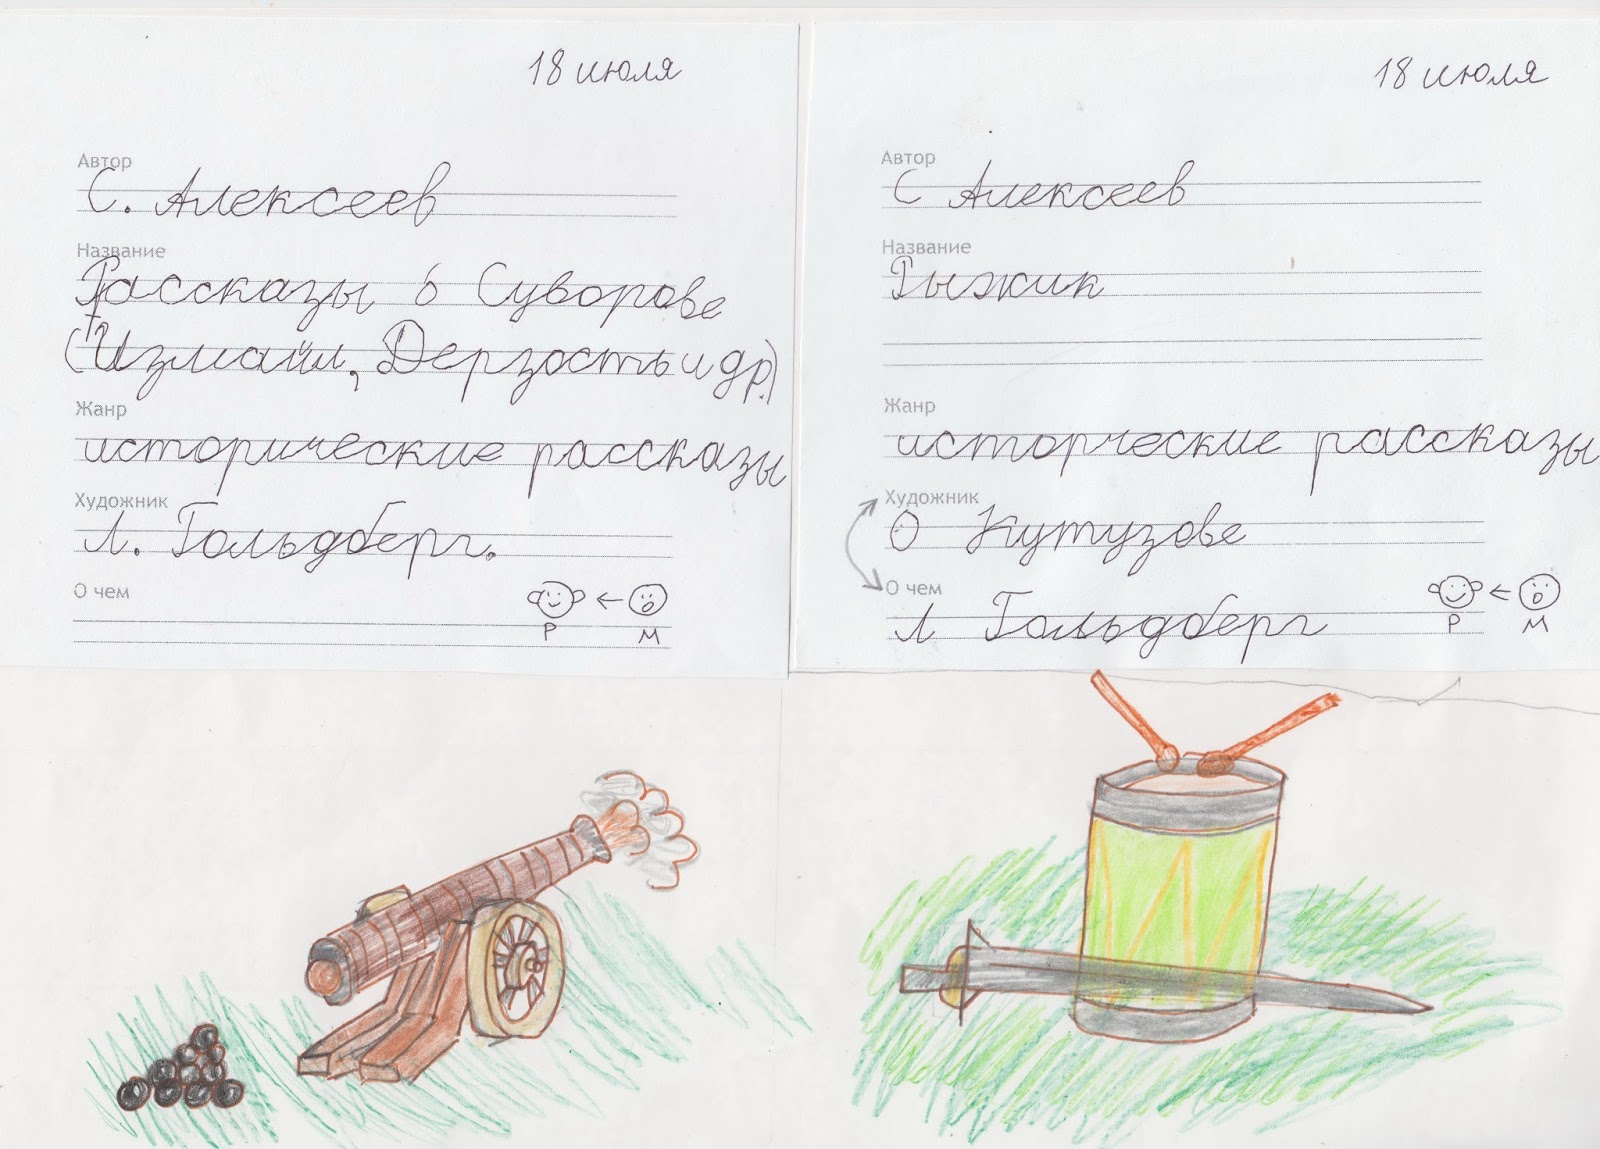 18 июля
Автор
С. Алексеев
Название
Рассказы о Суворове
(Измаил, Дерзость и др.)
Жанр
исторические рассказы
Художник
Л. Гольдберг.
О чем
Р М
18 июля
Автор
С Алексеев
Название
Рыжик
Жанр
исторческие рассказы
Художник
О Кутузове
О чем
Л Гольдберг
Р М